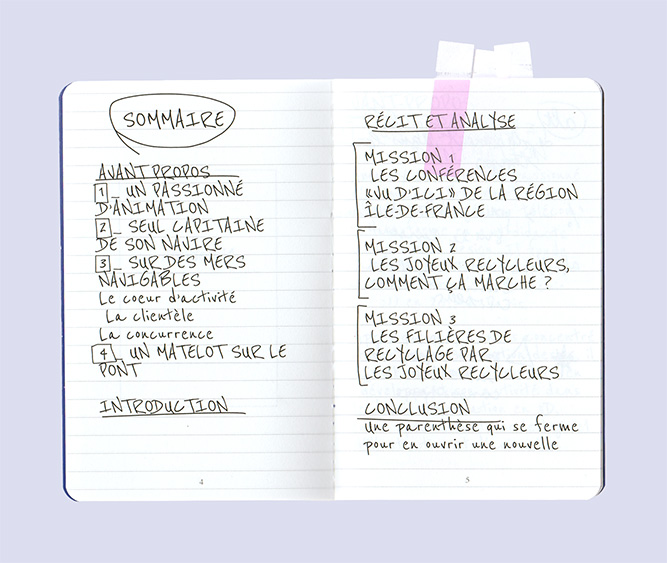 SOMMAIRE
AVANT PROPOS
1_ UN PASSIONNÉ
D'ANIMATION
2_ SEUL CAPITAINE
DE SON NAVIRE
3_ SUR DES MERS
NAVIGABLES
Le coeur d'activité
La clientèle
La concurrence
4_ UN MATELOT SUR LE
PONT
INTRODUCTION
4
RÉCIT ET ANALYSE
MISSION 1
LES CONFÉRENCES
«VU D'ICI» DE LA RÉGION
ÎLE-DE-FRANCE
MISSION 2
LES JOYEUX RECYCLEURS,
COMMENT ÇA MARCHE ?
MISSION 3
LES FILIÈRES DE
RECYCLAGE PAR
LES JOYEUX RECYCLEURS
CONCLUSION
Une parenthèse qui se ferme
pour en ouvrir une nouvelle
5